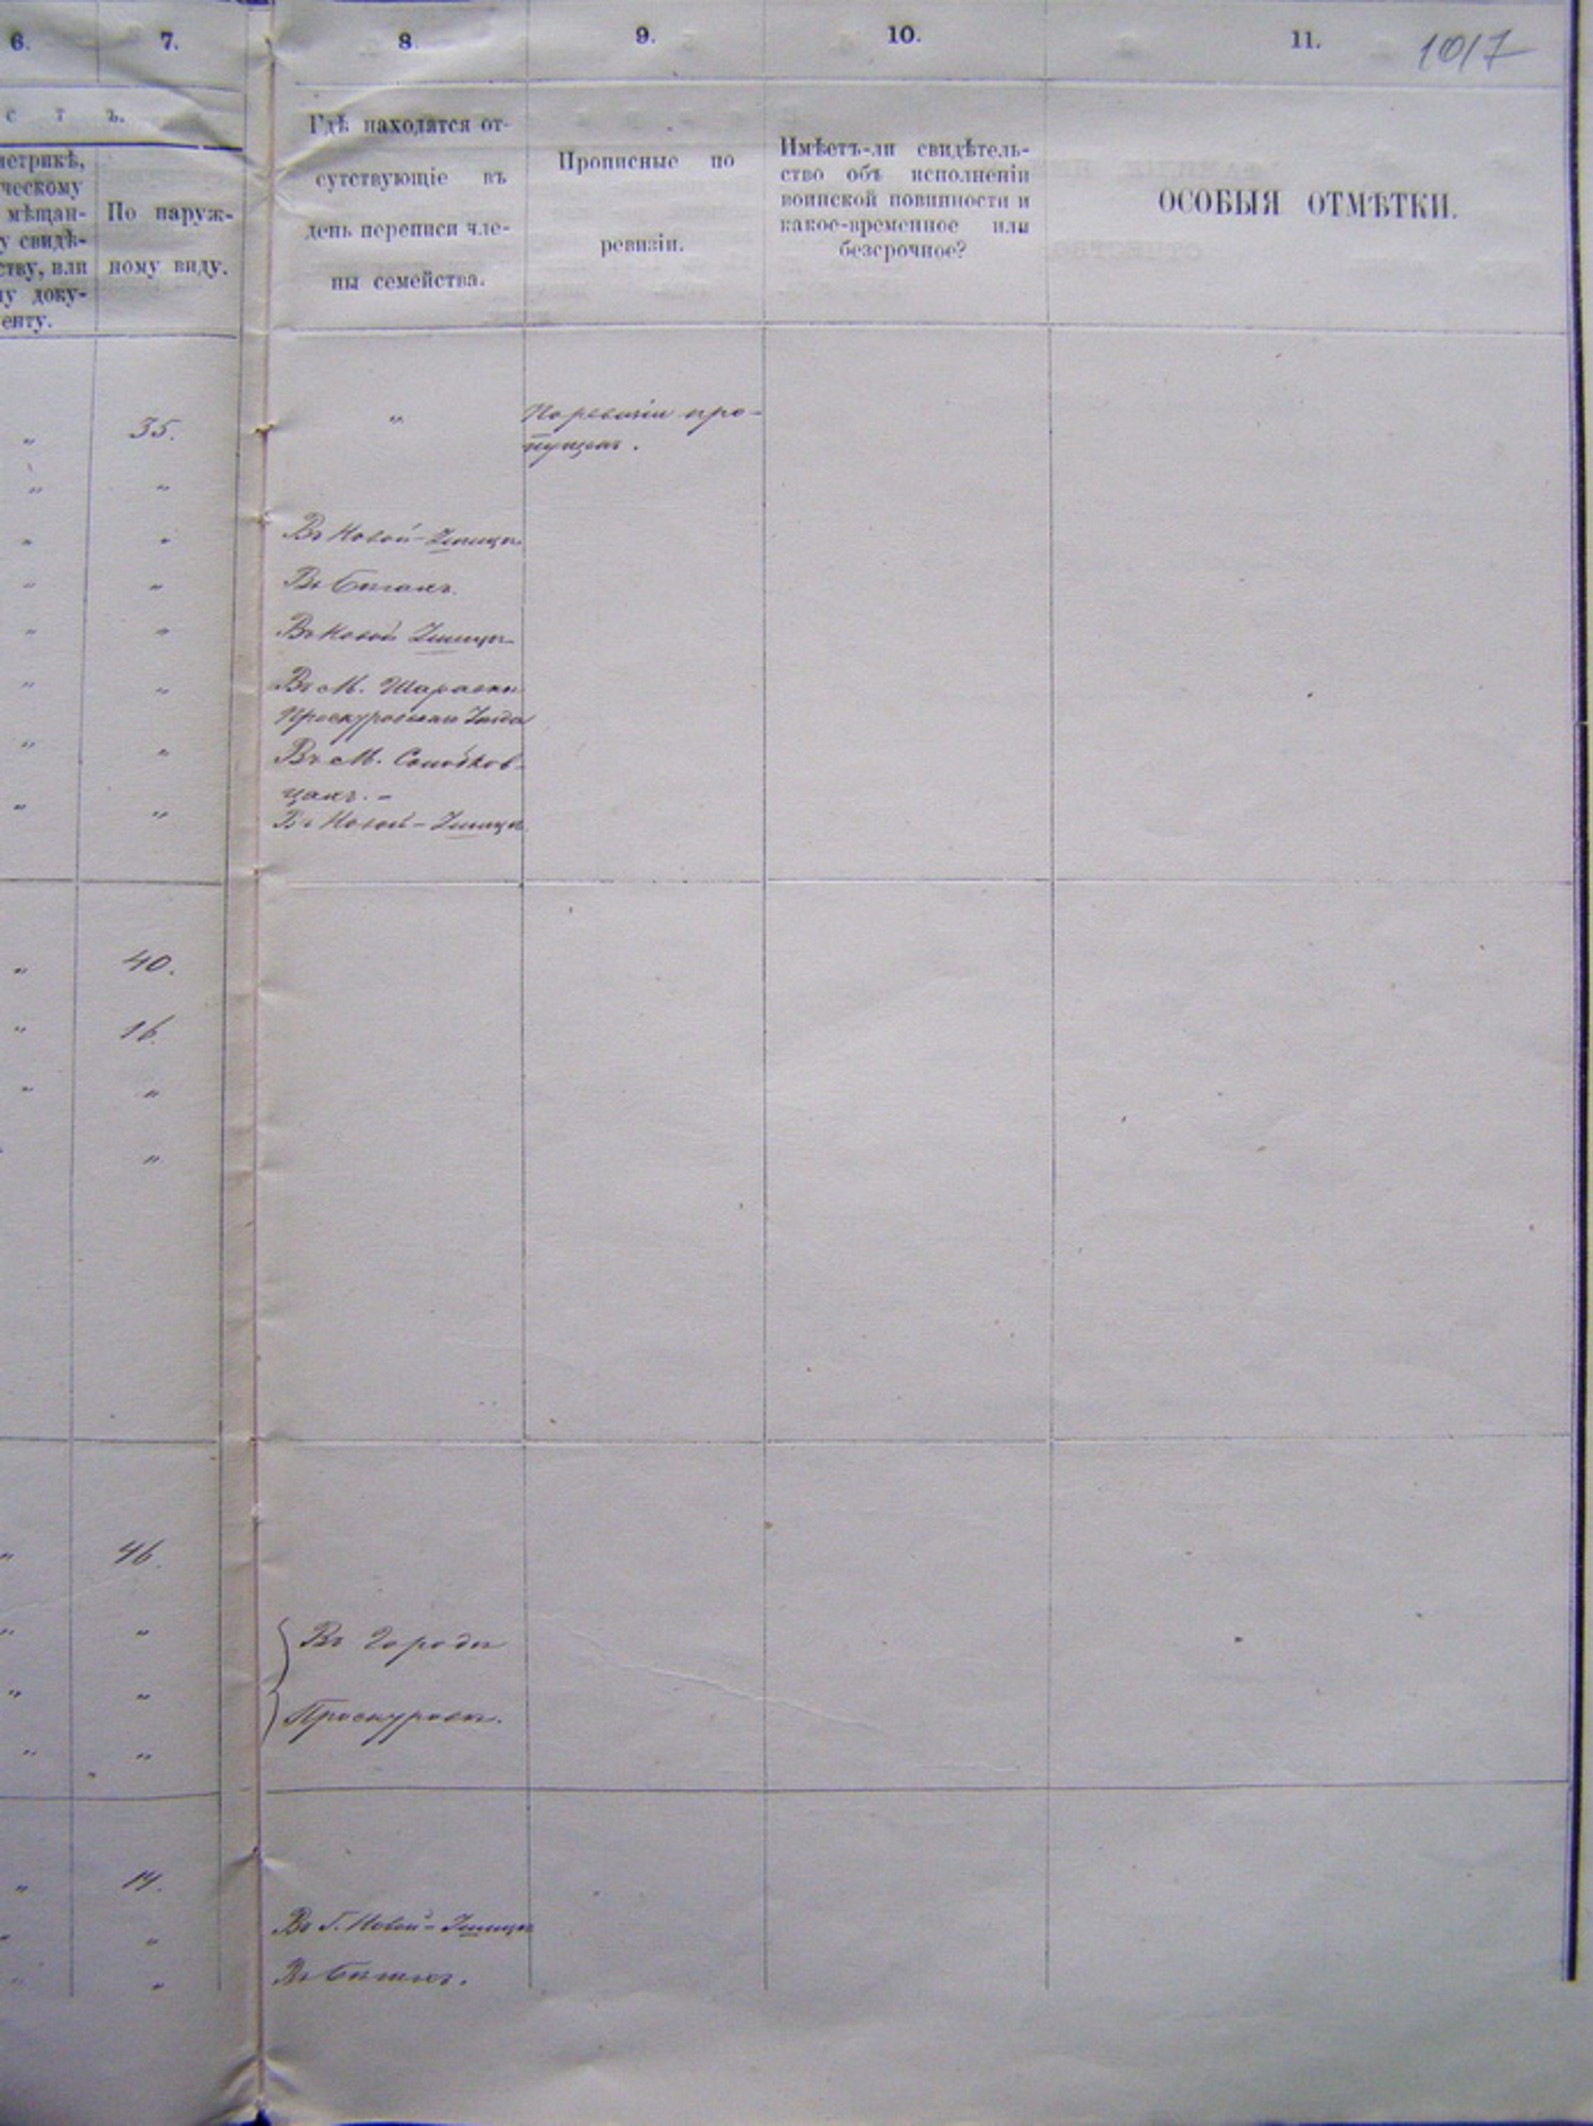 6.
7.
8
9.
10.
11.
1017
с т ъ.
метрикѣ,
ческому
мѣщан-
у свидѣ-
ству, или
му доку-
енту.
По наруж-
ному виду.
Гдѣ находятся от-
сутствующіе въ
день переписи чле-
ны семейства.
Прописные по
ревизіи.
Имѣетъ-ли свидѣтель-
ство объ исполненіи
воинской повинности и
какое-временное или
безсрочное?
ОСОБЫЯ ОТМѢТКИ.
„ 35. „ По ревизіи про-
пущенъ.
„ „
„ „ Въ Новой-Ушицѣ
„ „ Въ бѣгахъ.
„ „ Въ Новой Ушицѣ
„ „ Въ М. Шаравкѣ
Проскуровскаго Уѣзда
„ „ Въ М. Солобков-
цахъ. –
„ „ Въ Новой-Ушицѣ
„ 40.
„ 16.
„ „
„
„ 46.
„ „ Въ Городѣ
„ „ Проскуровѣ.
„ „
„ 14.
„ „ Въ Г. Новой-Ушицѣ
„ „ Въ бѣгахъ.